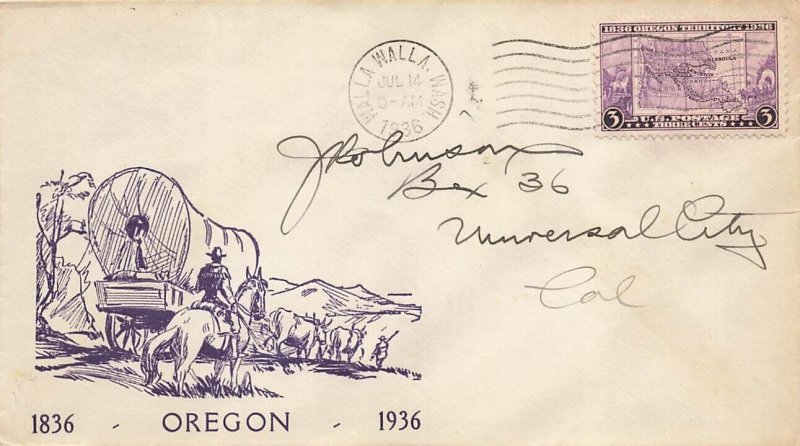 WALLA WALLA. WASH
JUL 14
-AM
1936
1836 OREGON TERRITORY 1936
3 U.S. POSTAGE 3
THREE CENTS
J R Johnson
Box 36
Universal City
Cal
1836 - OREGON - 1936